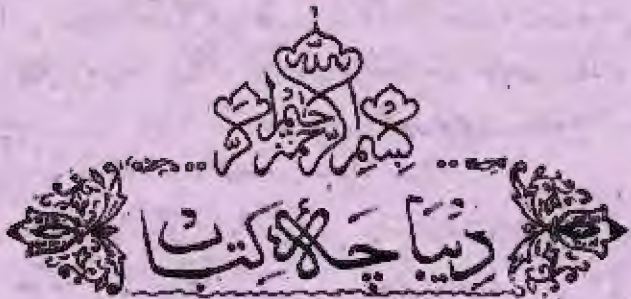 بسم اللہ الرحمن الرحیم
دیباچۂ کتاب